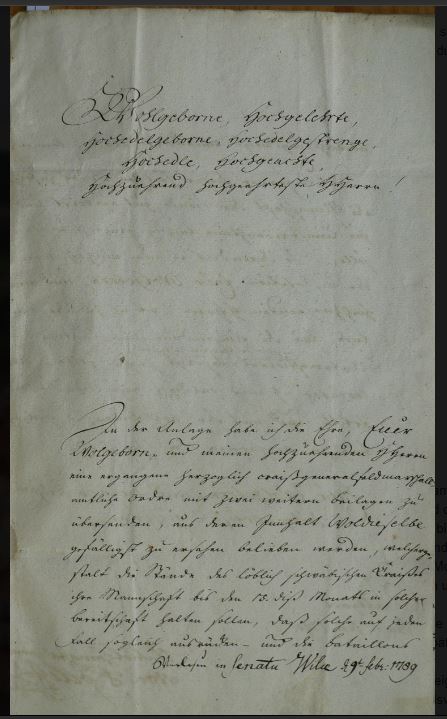 Wohlgeborne, Hochgelehrte,
Hochedelgeborne, Hochedelgestrenge,
Hochedle, Hochgeachte
Hochzuehrend hochgeehrteste HHerrn!
In der Anlage habe ich die Ehre, Euer
Wolgeborn- und meinen hochzuehrenden HHerrn
eine ergangene herzoglich craißgeneralfeldmarschall-
amtliche Ordre mit zwei weitern Beilagen zu
übersenden, aus deren Innhalt Woldieselbe
gefälligst zu ersehen belieben werden, welcherge-
stalt die Stände des löblich schwäbischen Craißes
ihre Mannschaft bis den 15. diß Monats in solcher
bereitschaft halten sollen, daß solche auf jeden
fall sogleich ausrüken- und die Bataillons
Verlesen in Senatu Wilae d. 9t. febr. 1789